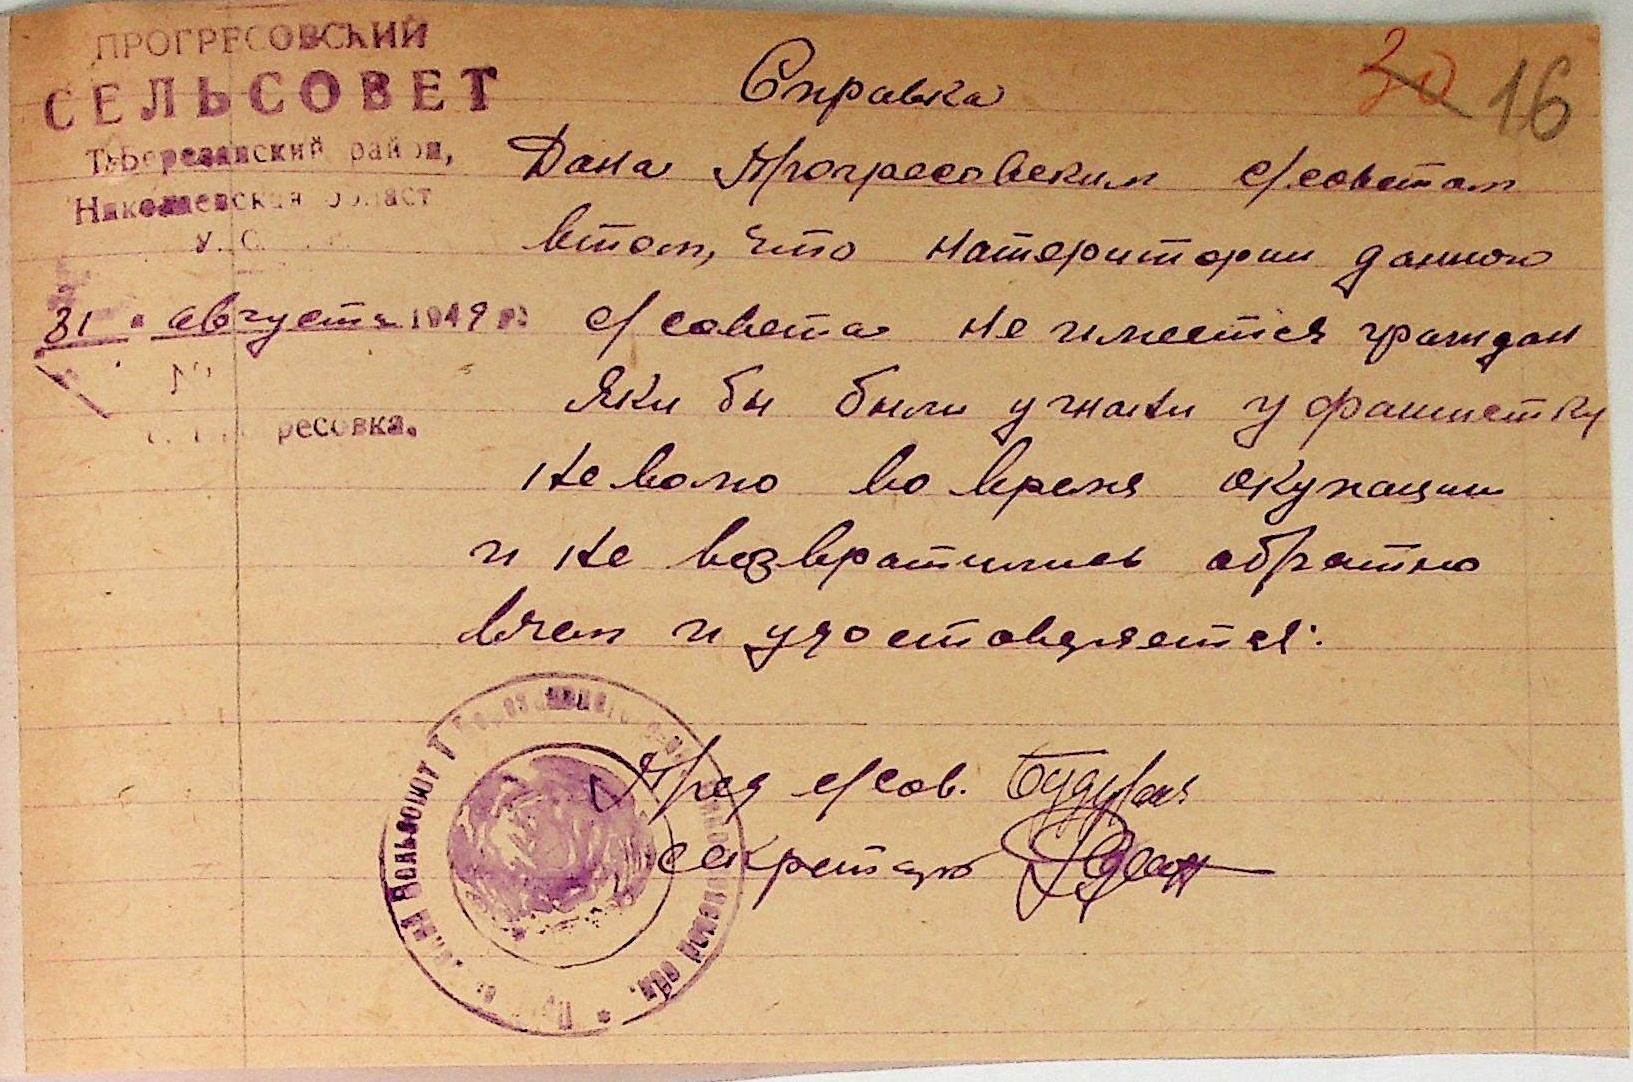 ПРОГРЕСОВСКИЙ
СЕЛЬСОВЕТ
Т-Березанский район,
Николаевская област
У. С.
31 августа 1949 г.
№
ресовка.
30 16
Справка
Дана Прогресовским с/советом
втом, что натеритории данного
с/совета не имеется граждан
яки бы были угнани у фашистку
неволю во время окупации
и не возвратились обратно
вчем и удостовряется.
Пред с/сов.
секретарь